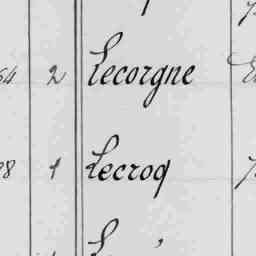 64 2 Lecorgne
98 1 Lecroq